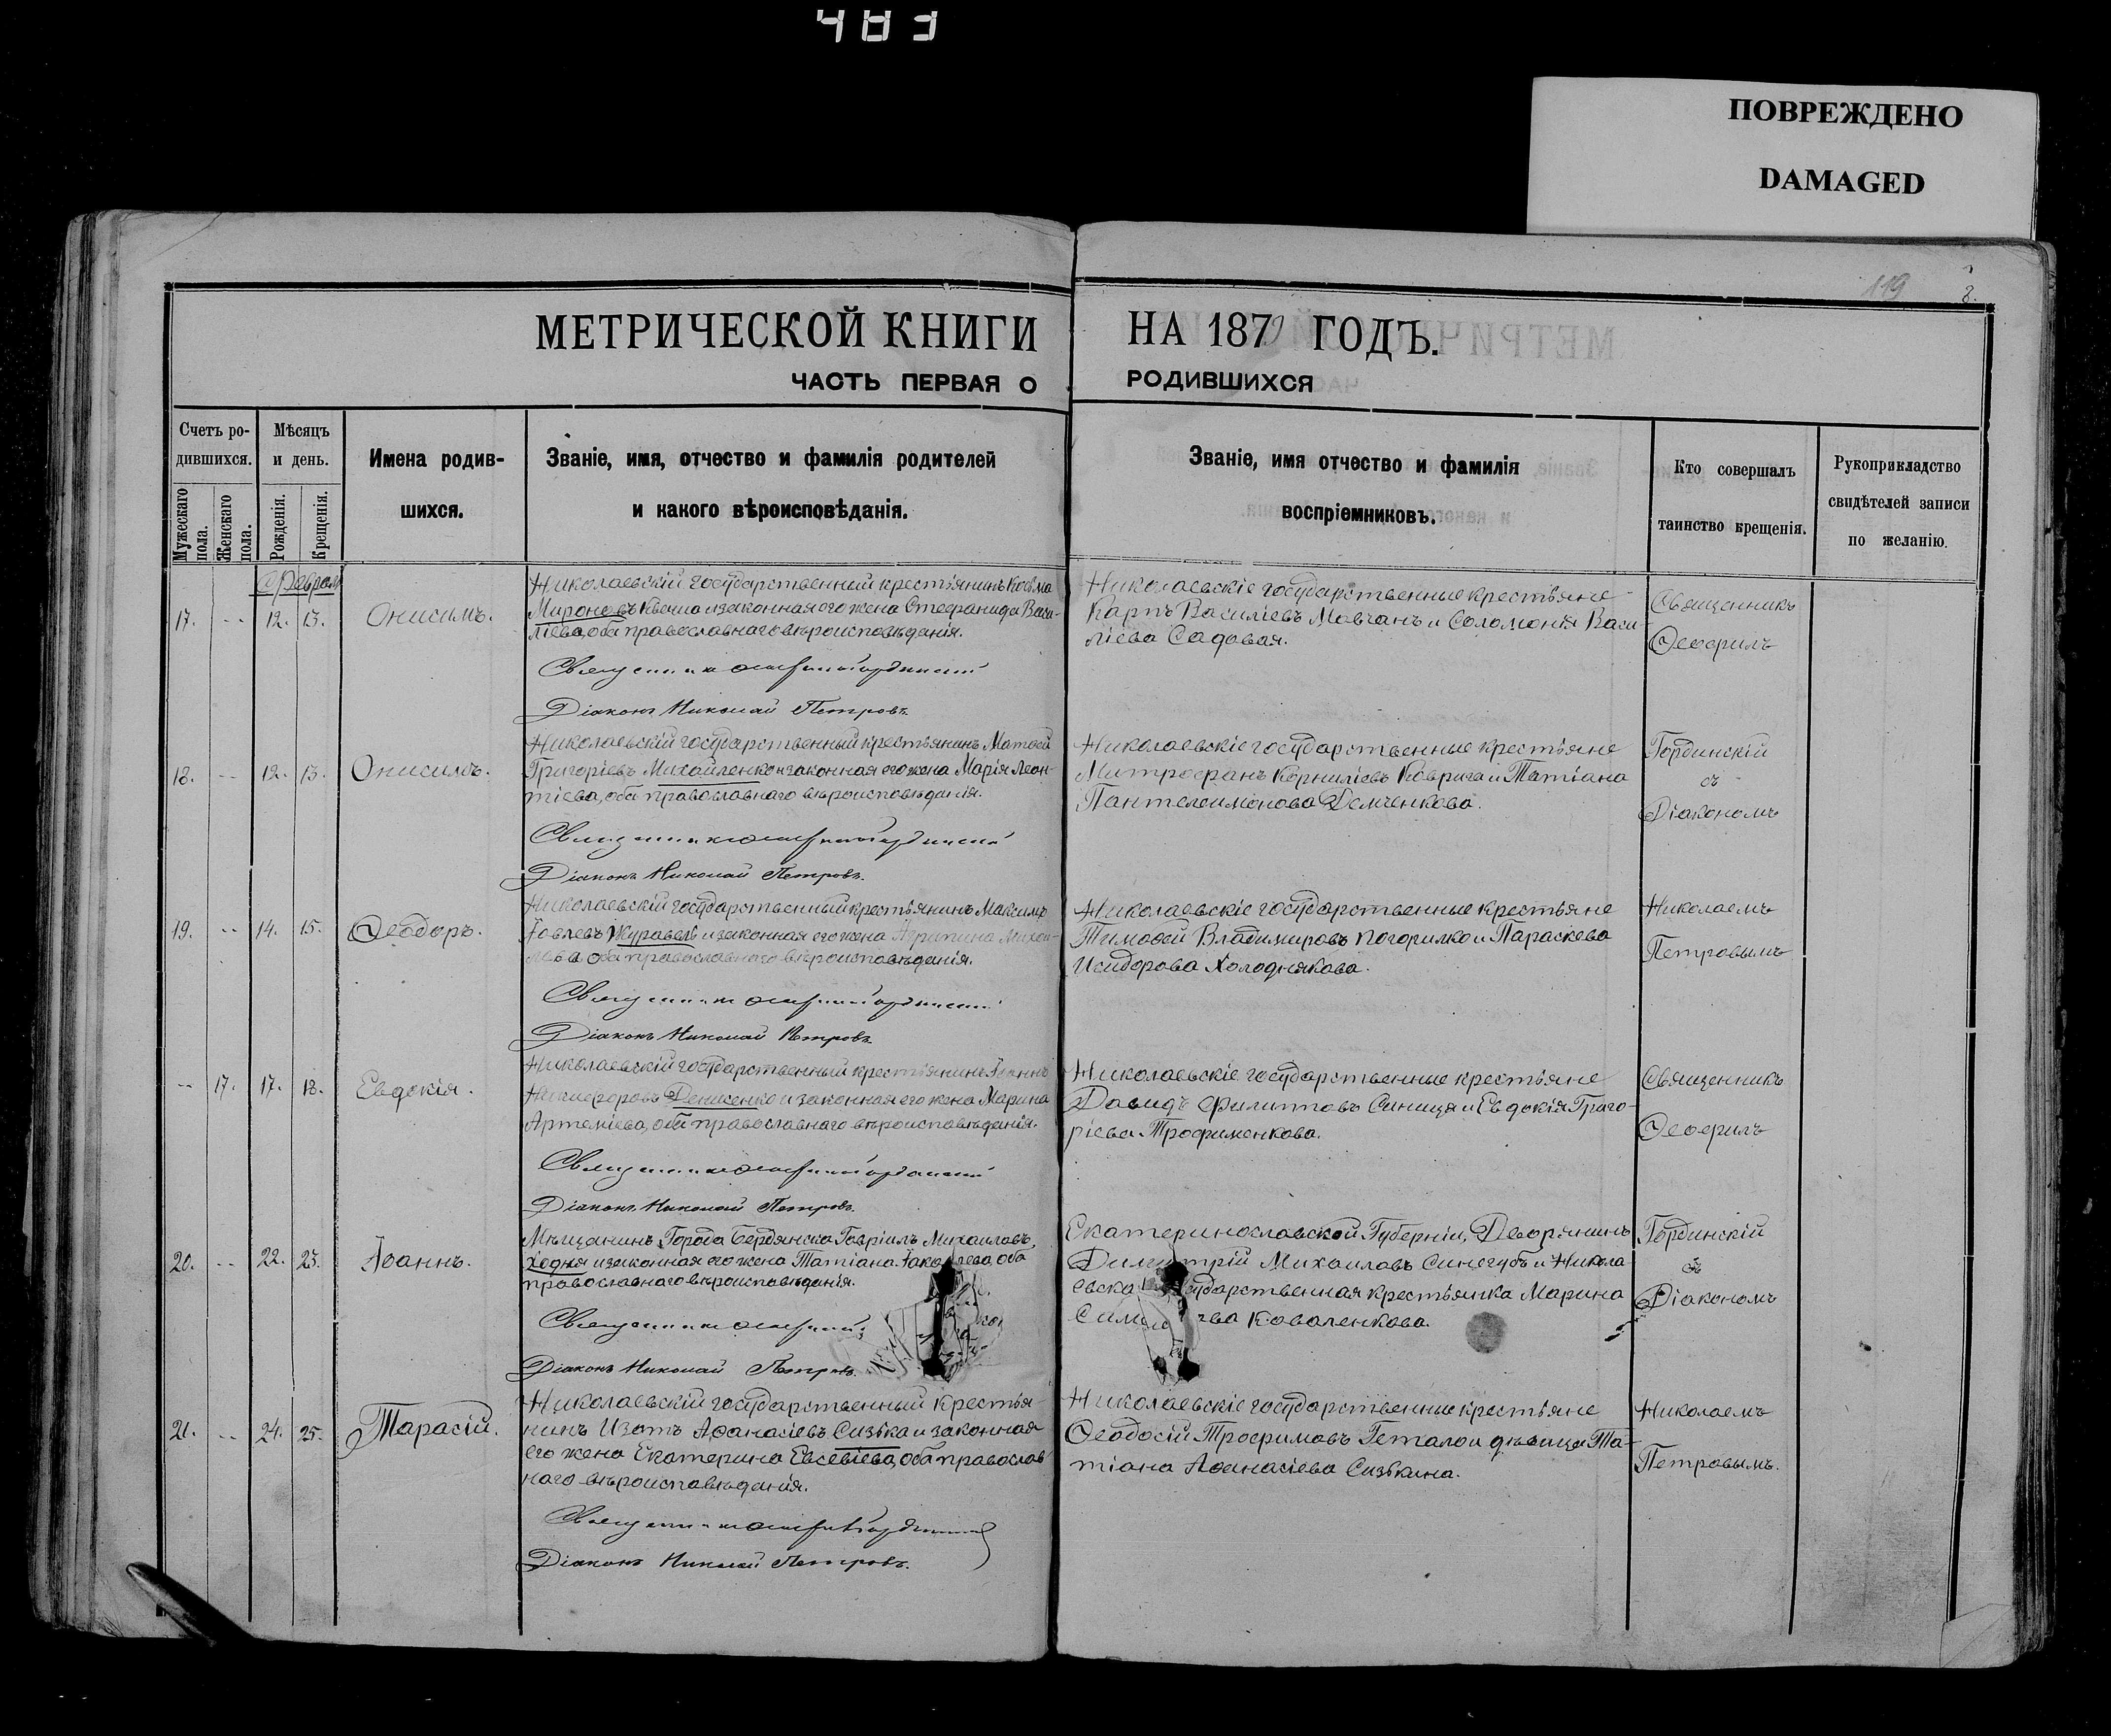 483
ПОВРЕЖДЕНО
DAMAGED
119
8.
МЕТРИЧЕСКОЙ КНИГИ НА 1879 ГОДЪ.
ЧАСТЬ ПЕРВАЯ О РОДИВШИХСЯ
Счетъ ро-
дившихся.
Мужескаго пола.
Женскаго пола.
Мѣсяцъ
и день.
Рожденія.
Крещенія.
Имена родив-
шихся.
Званіе, имя, отчество и фамилія родителей
и какого вѣроисповѣданія.
Званіе, имя отчество и фамилія
воспріемниковъ.
Кто совершалъ
таинство крещенія.
Рукоприкладство
свидѣтелей записи
по желанію.
17. -- 12. 13. Онисимъ.
Николаевскій государственный крестьянинъ Косьма
Мироновъ Квоша и законная его жена Стефанида Васи-
ліева, оба православнаго вѣроисповѣданія.
Діаконъ Николай Петровъ.
Николаевскіе государственные крестьяне
Карпъ Василіевъ Мовчанъ и Соломонія Васи-
ліева Садовая.
Священникъ
Ѳеофилъ
18. -- 12. 13. Онисимъ.
Николаевскій государственный крестьянинъ Матѳей
Григоріевъ Михайленко и законная его жена Марія Леон-
тіева, оба православнаго вѣроисповѣданія.
Діаконъ Николай Петровъ.
Николаевскіе государственные крестьяне
Митрофанъ Корниліевъ Коврига и Татіана
Пантелеимонова Демченкова.
Гординскій
съ
Діакономъ
19. -- 14. 15. Ѳеодоръ.
Николаевскій государственный крестьянинъ Максимъ
Іовлевъ Журавель и законная его жена Агрипина Михаи-
лова оба православнаго вѣроисповѣданія.
Діаконъ Николай Петровъ.
Николаевскіе государственные крестьяне
Тимоѳей Владимировъ Погорилко и Параскева
Исидорова Холоднякова.
Николаемъ
Петровымъ
-- 17. 17. 18. Евдокія.
Николаевскій государственный крестьянинъ Іоаннъ
Никифоровъ Денисенко и законная его жена Марина
Артеміева, оба православнаго вѣроисповѣданія.
Діаконъ Николай Петровъ.
Николаевскіе государственные крестьяне
Давидъ Филипповъ Синиця и Евдокія Григо-
ріева Трофименкова.
Священникъ
Ѳеофилъ
20. -- 22. 23. Іоаннъ.
Мѣщанинъ Города Бердянска Гавріилъ Михаиловъ
Ходня и законная его жена Татіана оба
православнаго вѣроисповѣданія.
Діаконъ Николай Петровъ.
Екатеринославской Губерніи, Дворянинъ
Димитрій Михаиловъ Синегубъ и Никола-
евска государственная крестьянка Марина
Коваленкова.
Гординскій
съ
Діакономъ
21. -- 24. 25. Тарасій.
Николаевскій государственный крестья-
нинъ Изотъ Аѳанасіевъ Сизька и законная
его жена Екатерина Евсевіева, оба православ
наго вѣроисповѣданія.
Діаконъ Николай Петровъ.
Николаевскіе государственные крестьяне
Ѳеодосій Трофимовъ Гетало и дѣвица Та-
тіана Аѳанасіева Сизькина.
Николаемъ
Петровымъ.